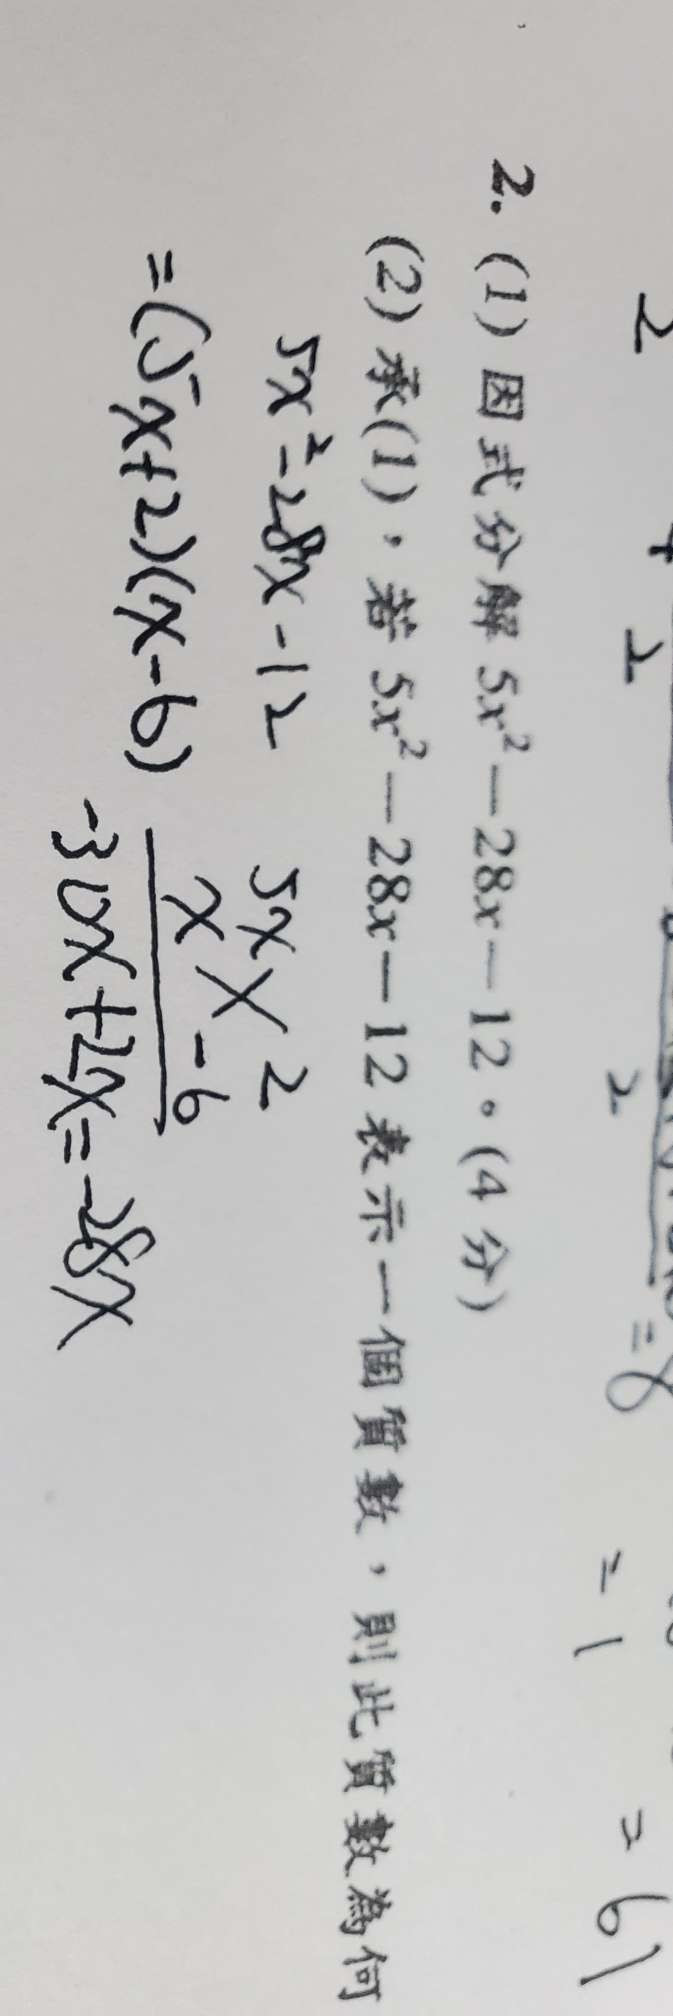 2 + 2 2 = 8 = 1 = 61
2. (1) 因式分解 5x²－28x－12。(4 分)
(2) 承(1)，若 5x²－28x－12 表示一個質數，則此質數為何
5x²-28x-12 5x 2
x -6
=(5x+2)(x-6)
-30x+2x=-28x